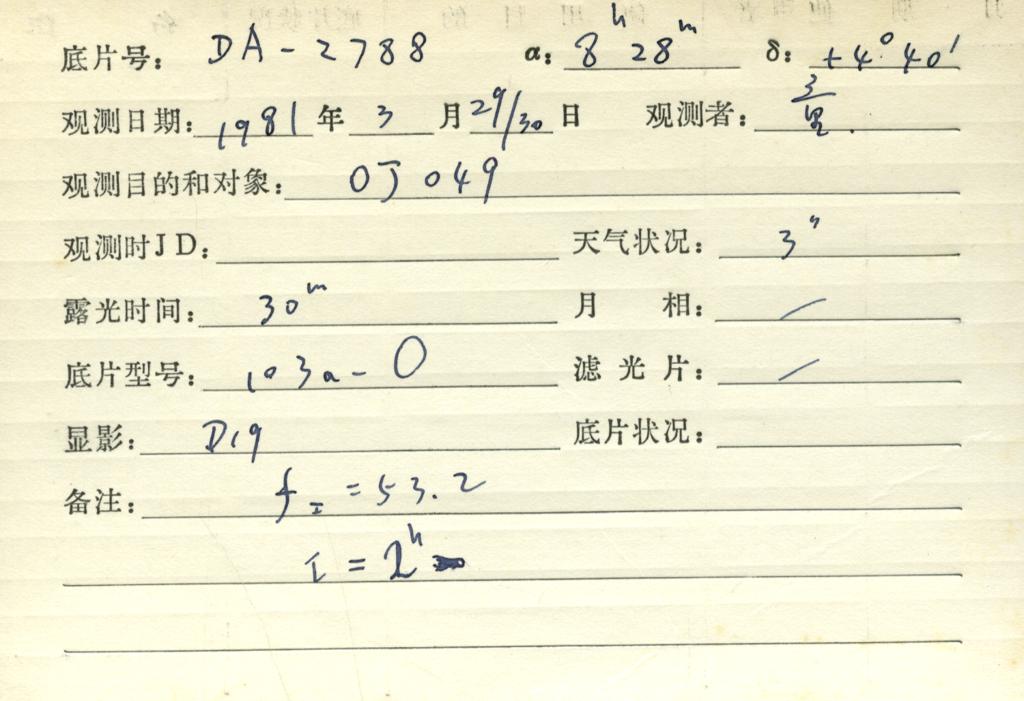 底片号: DA-2788 α: 8ʰ28ᵐ δ: +4°40′
观测日期: 1981年3月29/30日 观测者:
观测目的和对象: OJ 049
观测时JD: 天气状况: 3"
露光时间: 30ᵐ 月 相: /
底片型号: 103a-O 滤光片: /
显影: D19 底片状况:
备注: f_I = 53.2
I = 2ʰ